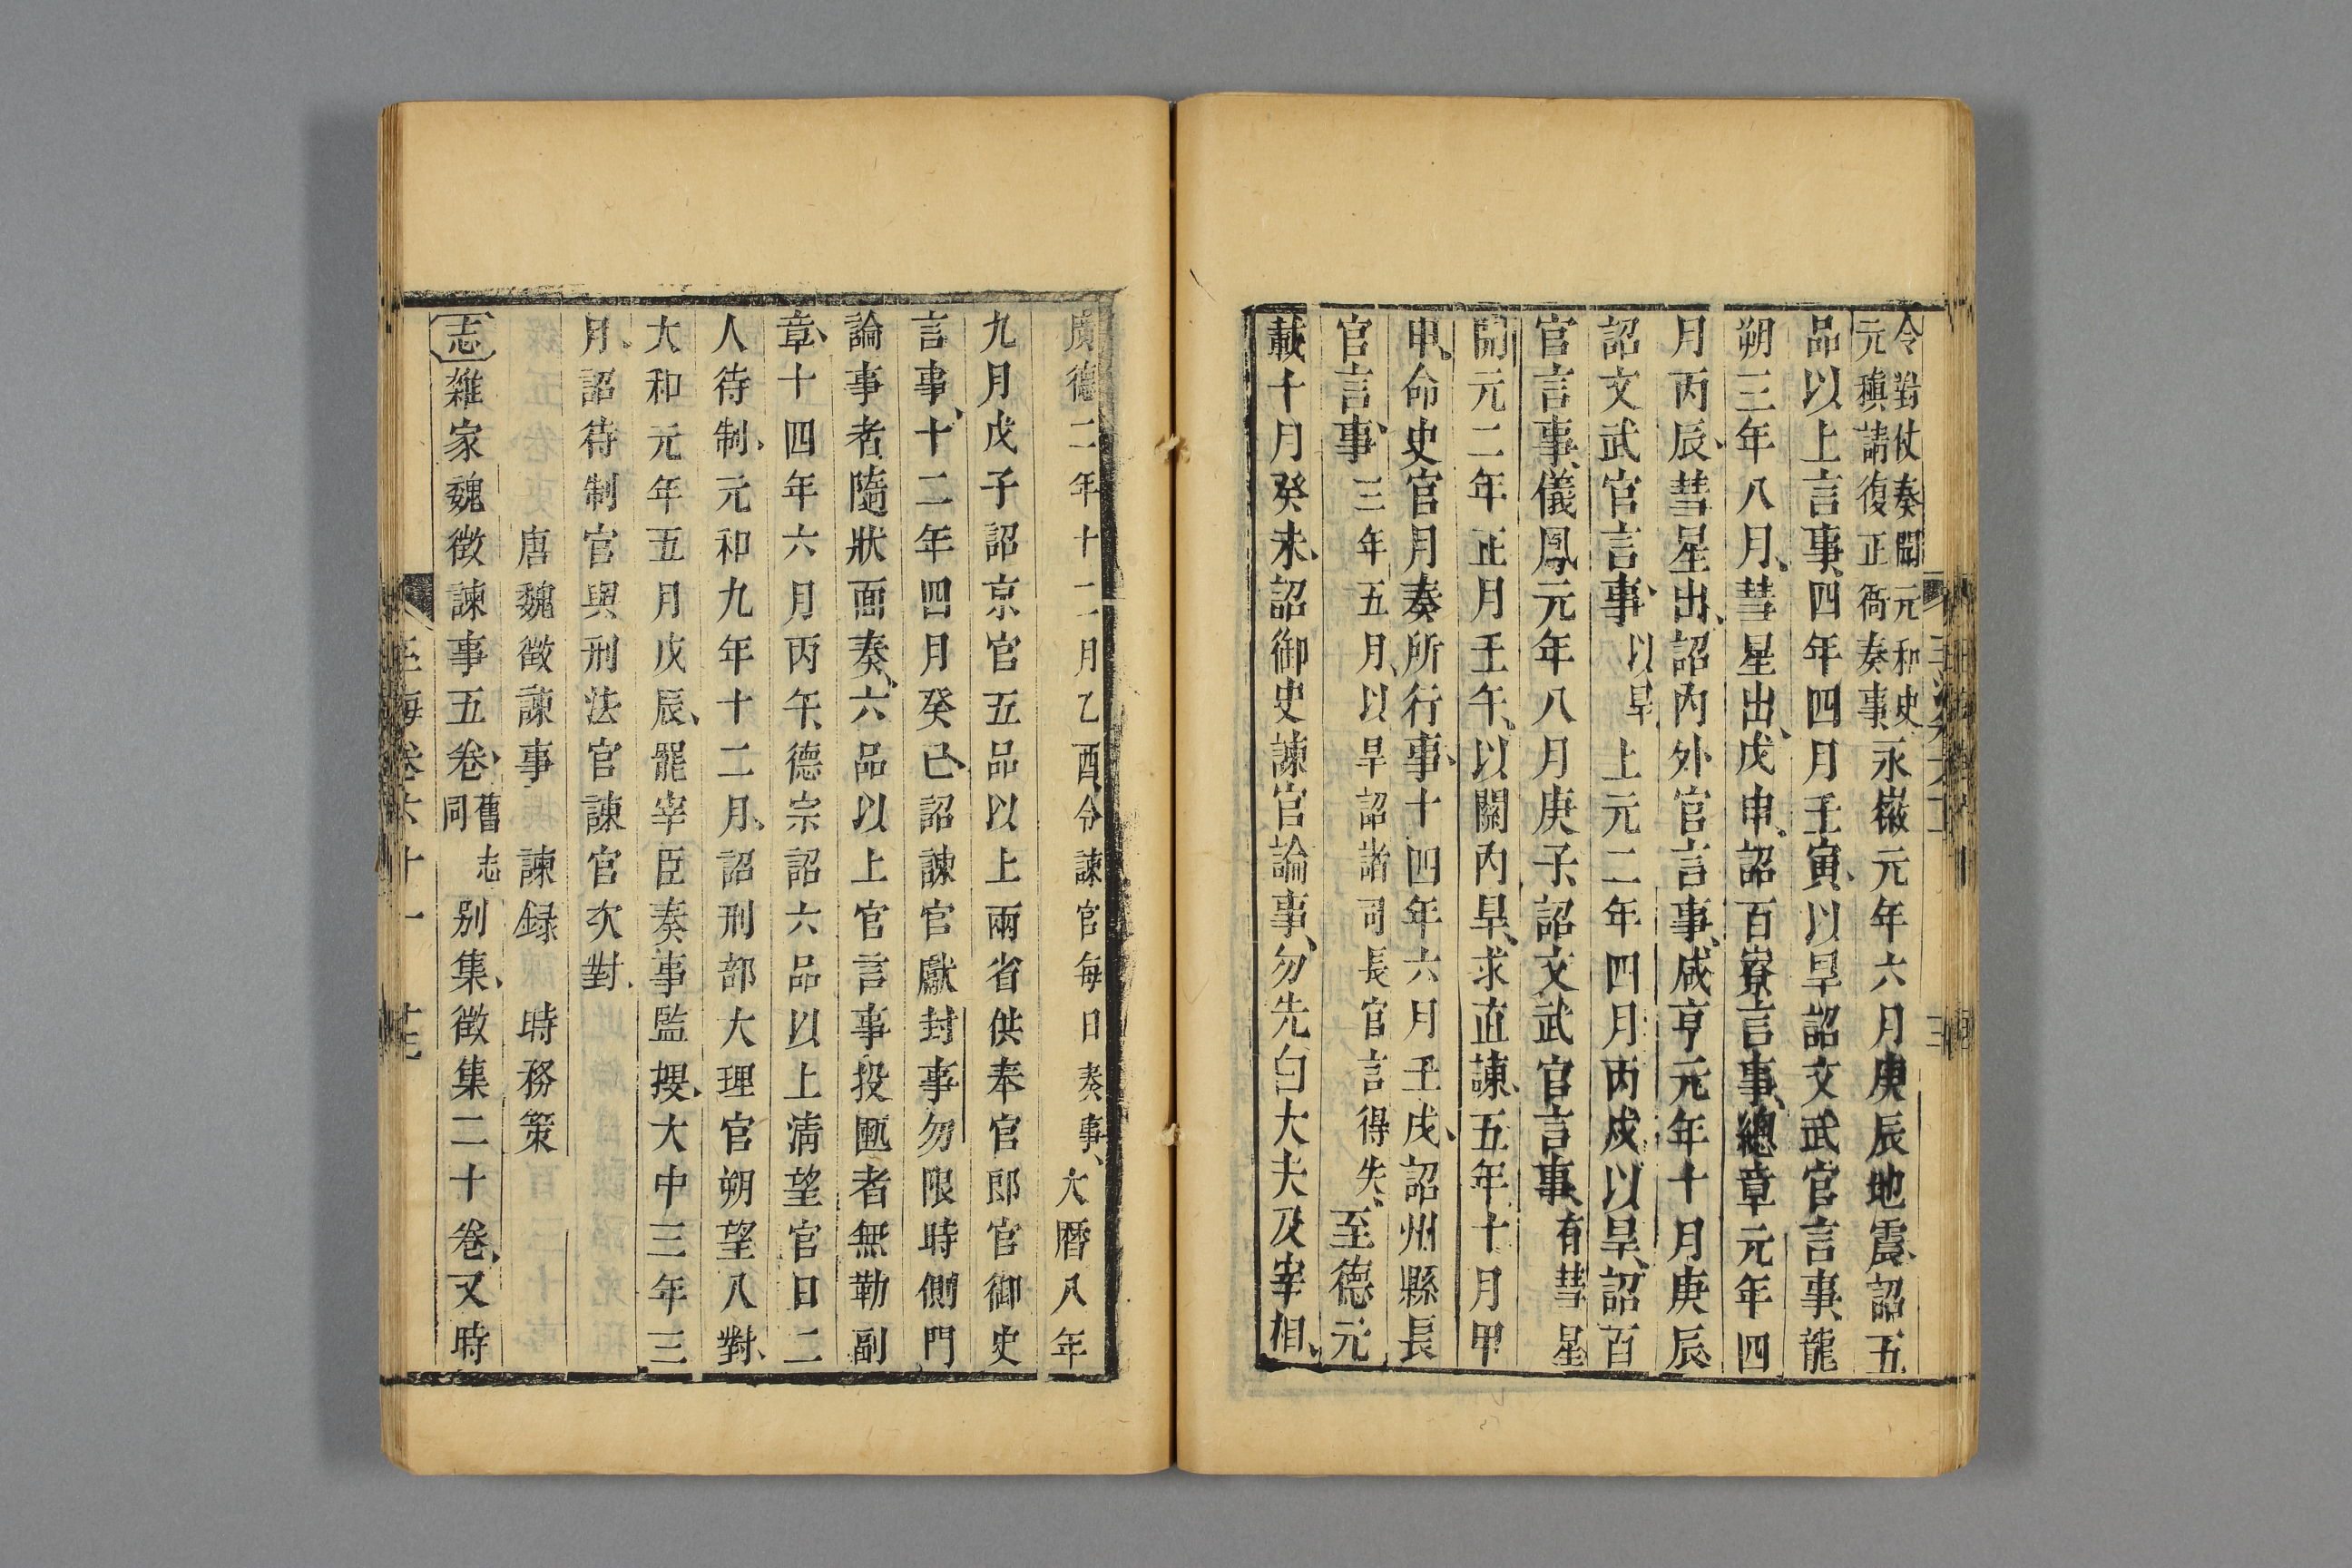 令對仗奏聞元和史
元稹請復正衙奏事永嶶元年六月庚辰地震、詔五
品以上言事、四年四月壬寅、以旱詔文武官言事、龍
朔三年八月、彗星出、戊申、詔百寮言事、總章元年四
月丙辰、彗星出、詔內外官言事、咸亨元年十月庚辰
詔文武官言事、以旱上元二年四月丙戍以旱、詔百
官言事、儀鳳元年八月庚子、詔文武官言事、有彗星
開元二年正月壬午、以關內旱、求直諫、五年十月甲
申、命史官月奏所行事、十四年六月壬戌、詔州縣長
官言事、三年五月、以旱詔諸司長官言得失、至德元
載十月癸未、詔御史諫官論事、勿先白大夫及宰相、
廣德二年十二月乙酉、令諫官每日奏事、大曆八年
九月戊子詔京官五品以上兩省供奉官郎官御史
言事、十二年四月癸巳、詔諫官獻封事勿限時側門
論事者隨狀面奏、六品以上官言事投匭者無勒副
章、十四年六月丙午、德宗詔六品以上清望官日二
人待制、元和九年十二月、詔刑部大理官朔望入對、
大和元年五月戊辰、罷宰臣奏事監搜、大中三年三
月、詔待制官與刑法官諫官次對、
唐魏徵諫事　諫録　時務策
志雜家魏徵諫事五卷、舊志
同別集、徵集二十卷、又時
玉海卷六十一　十七